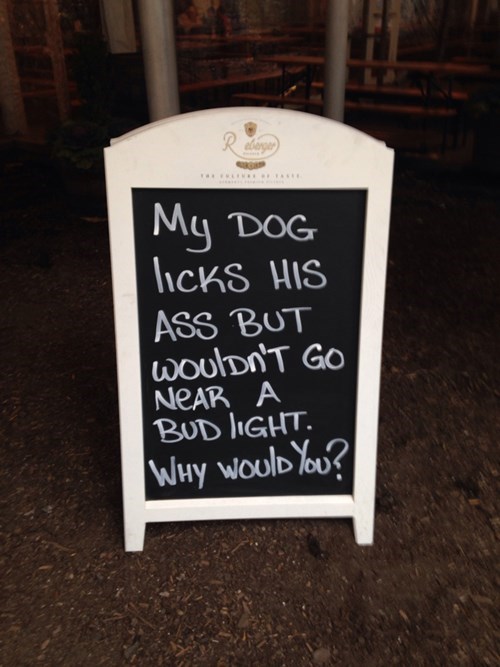 THE CULTURE OF TASTE
My DOG
licks HIS
ASS BUT
wouldn't GO
NEAR A
BUD lIGHT.
WHY would You?